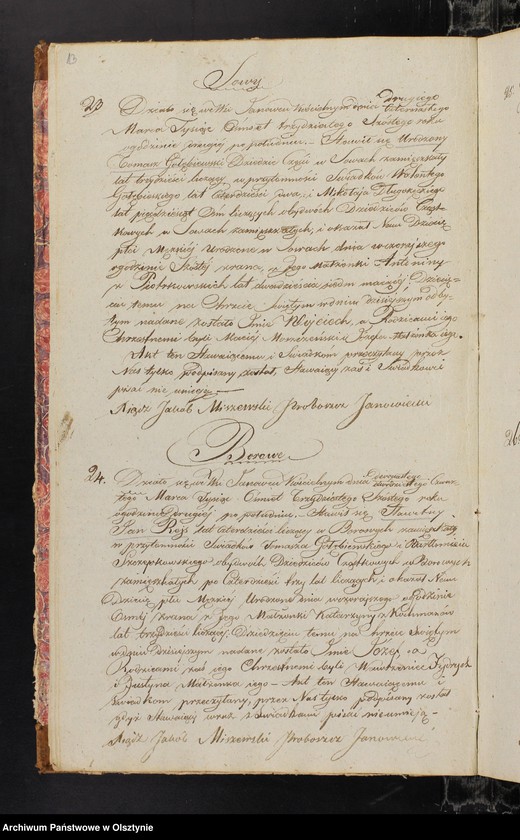 13
Sowy
23
Działo się we Wsi Janowcu Kościelnym dnia drugiego
Marca Tysiąc Ośmset trzydziestego Szóstego roku
o godzinie drugiey po południu. Stawił się Urodzony
Tomasz Gołębiewski Dziedzic Części w Sowach zamieszkały
lat trzydzieści liczący w przytomności Świadków Walentego
Gołębiewskiego lat czterdzieści dwa, i Mikołaja Długokęckiego
lat pięćdziesiąt Dwa liczących obydwóch Dziedziców Cząst-
kowych w Sowach zamieszkałych, i okazał Nam Dziecię
płci Męzkiey Urodzone w Sowach dnia wczorayszego
o godzinie Szóstey zrana, z Jego Małżonki Antoniny
z Piotrkowskich lat dwadzieścia siedm maiącey. Dziecię-
ciu temu na Chrzcie Świętym w dniu dzisieyszym odby-
tym nadane zostało Imie Woyciech, a Rodzicami iego
Chrzestnemi byli Maciey
Akt ten Stawaiącemu i Świadkom przeczytany przez
Nas tylko podpisany został, Stawaiący zaś i Świadkowie
pisać nie umieią.
Xiądz Jakób Miszewski Proboszcz Janowiecki
Berowe
24.
Działo się we Wsi Janowcu Kościelnym dnia
Marca Tysiąc Ośmset Trzydziestego Szóstego roku
o godzinie drugiey po południu. Stawił się
Jan lat czterdzieści liczący w zamieszkały
w przytomności Świadków Tomasza Gołębiewskiego i Bartłomieia
Szczepkowskiego obydwóch Dziedziców Cząstkowych w
zamieszkałych po czterdzieści trzy lat liczących i okazał Nam
Dziecię płci Męzkiey Urodzone dnia wczorayszego o godzinie
Ósmey zrana z Jego Małżonki Katarzyny z
lat trzydzieści liczącey, Dziecięciu temu na Chrzcie Świętym
w dniu Dzisieyszym nadane zostało Imie Józef, a
Rodzicami zaś iego Chrzestnemi byli Wawrzeniec
i Justyna Małżonka iego. Akt ten Stawaiącemu i
Świadkom przeczytany, przez Nas tylko podpisany został
gdyż Stawaiący wraz z Świadkami pisać nieumieią.
Xiądz Jakób Miszewski Proboszcz Janowiecki
Archiwum Państwowe w Olsztynie